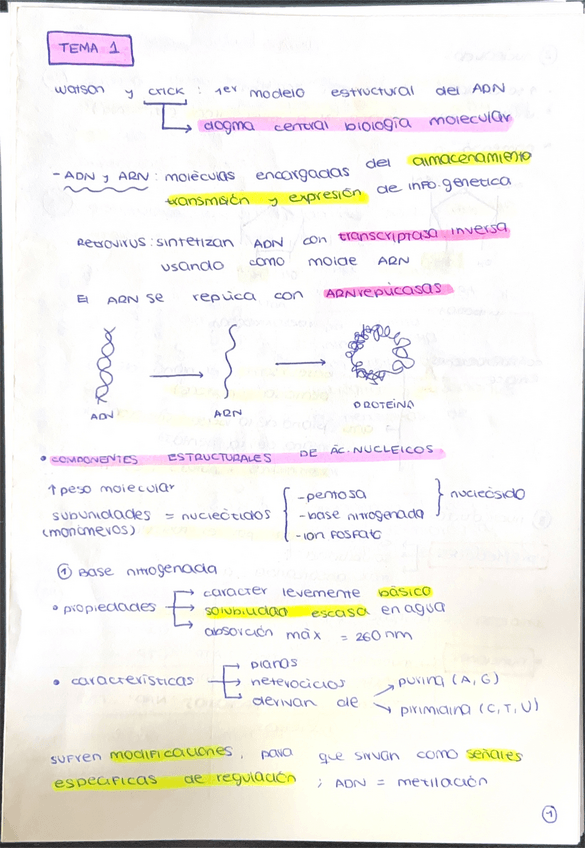 TEMA 1
Watson y Crick : 1er modelo estructural del ADN
dogma central biología molecular
- ADN y ARN : moléculas encargadas del almacenamiento
transmisión y expresión de info. genética
Retrovirus : sintetizan ADN con transcriptasa inversa
usando como molde ARN
El ARN se replica con ARNreplicasas
ADN
ARN
PROTEÍNA
• COMPONENTES ESTRUCTURALES DE ÁC. NUCLEICOS
↑ peso molecular
subunidades = nucleótidos
(monómeros)
- pentosa
- base nitrogenada
- ion fosfato
nucleósido
① Base nitrogenada
• propiedades
caracter levemente básico
solubilidad escasa en agua
absorción máx = 260 nm
• características
planas
heterociclos
derivan de
purina (A, G)
pirimidina (C, T, U)
sufren modificaciones, para que sirvan como señales
específicas de regulación ; ADN = metilación
1